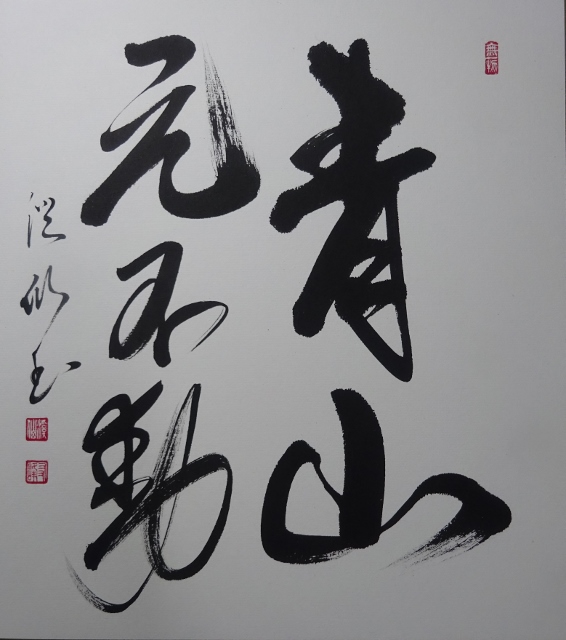 青山
元不動